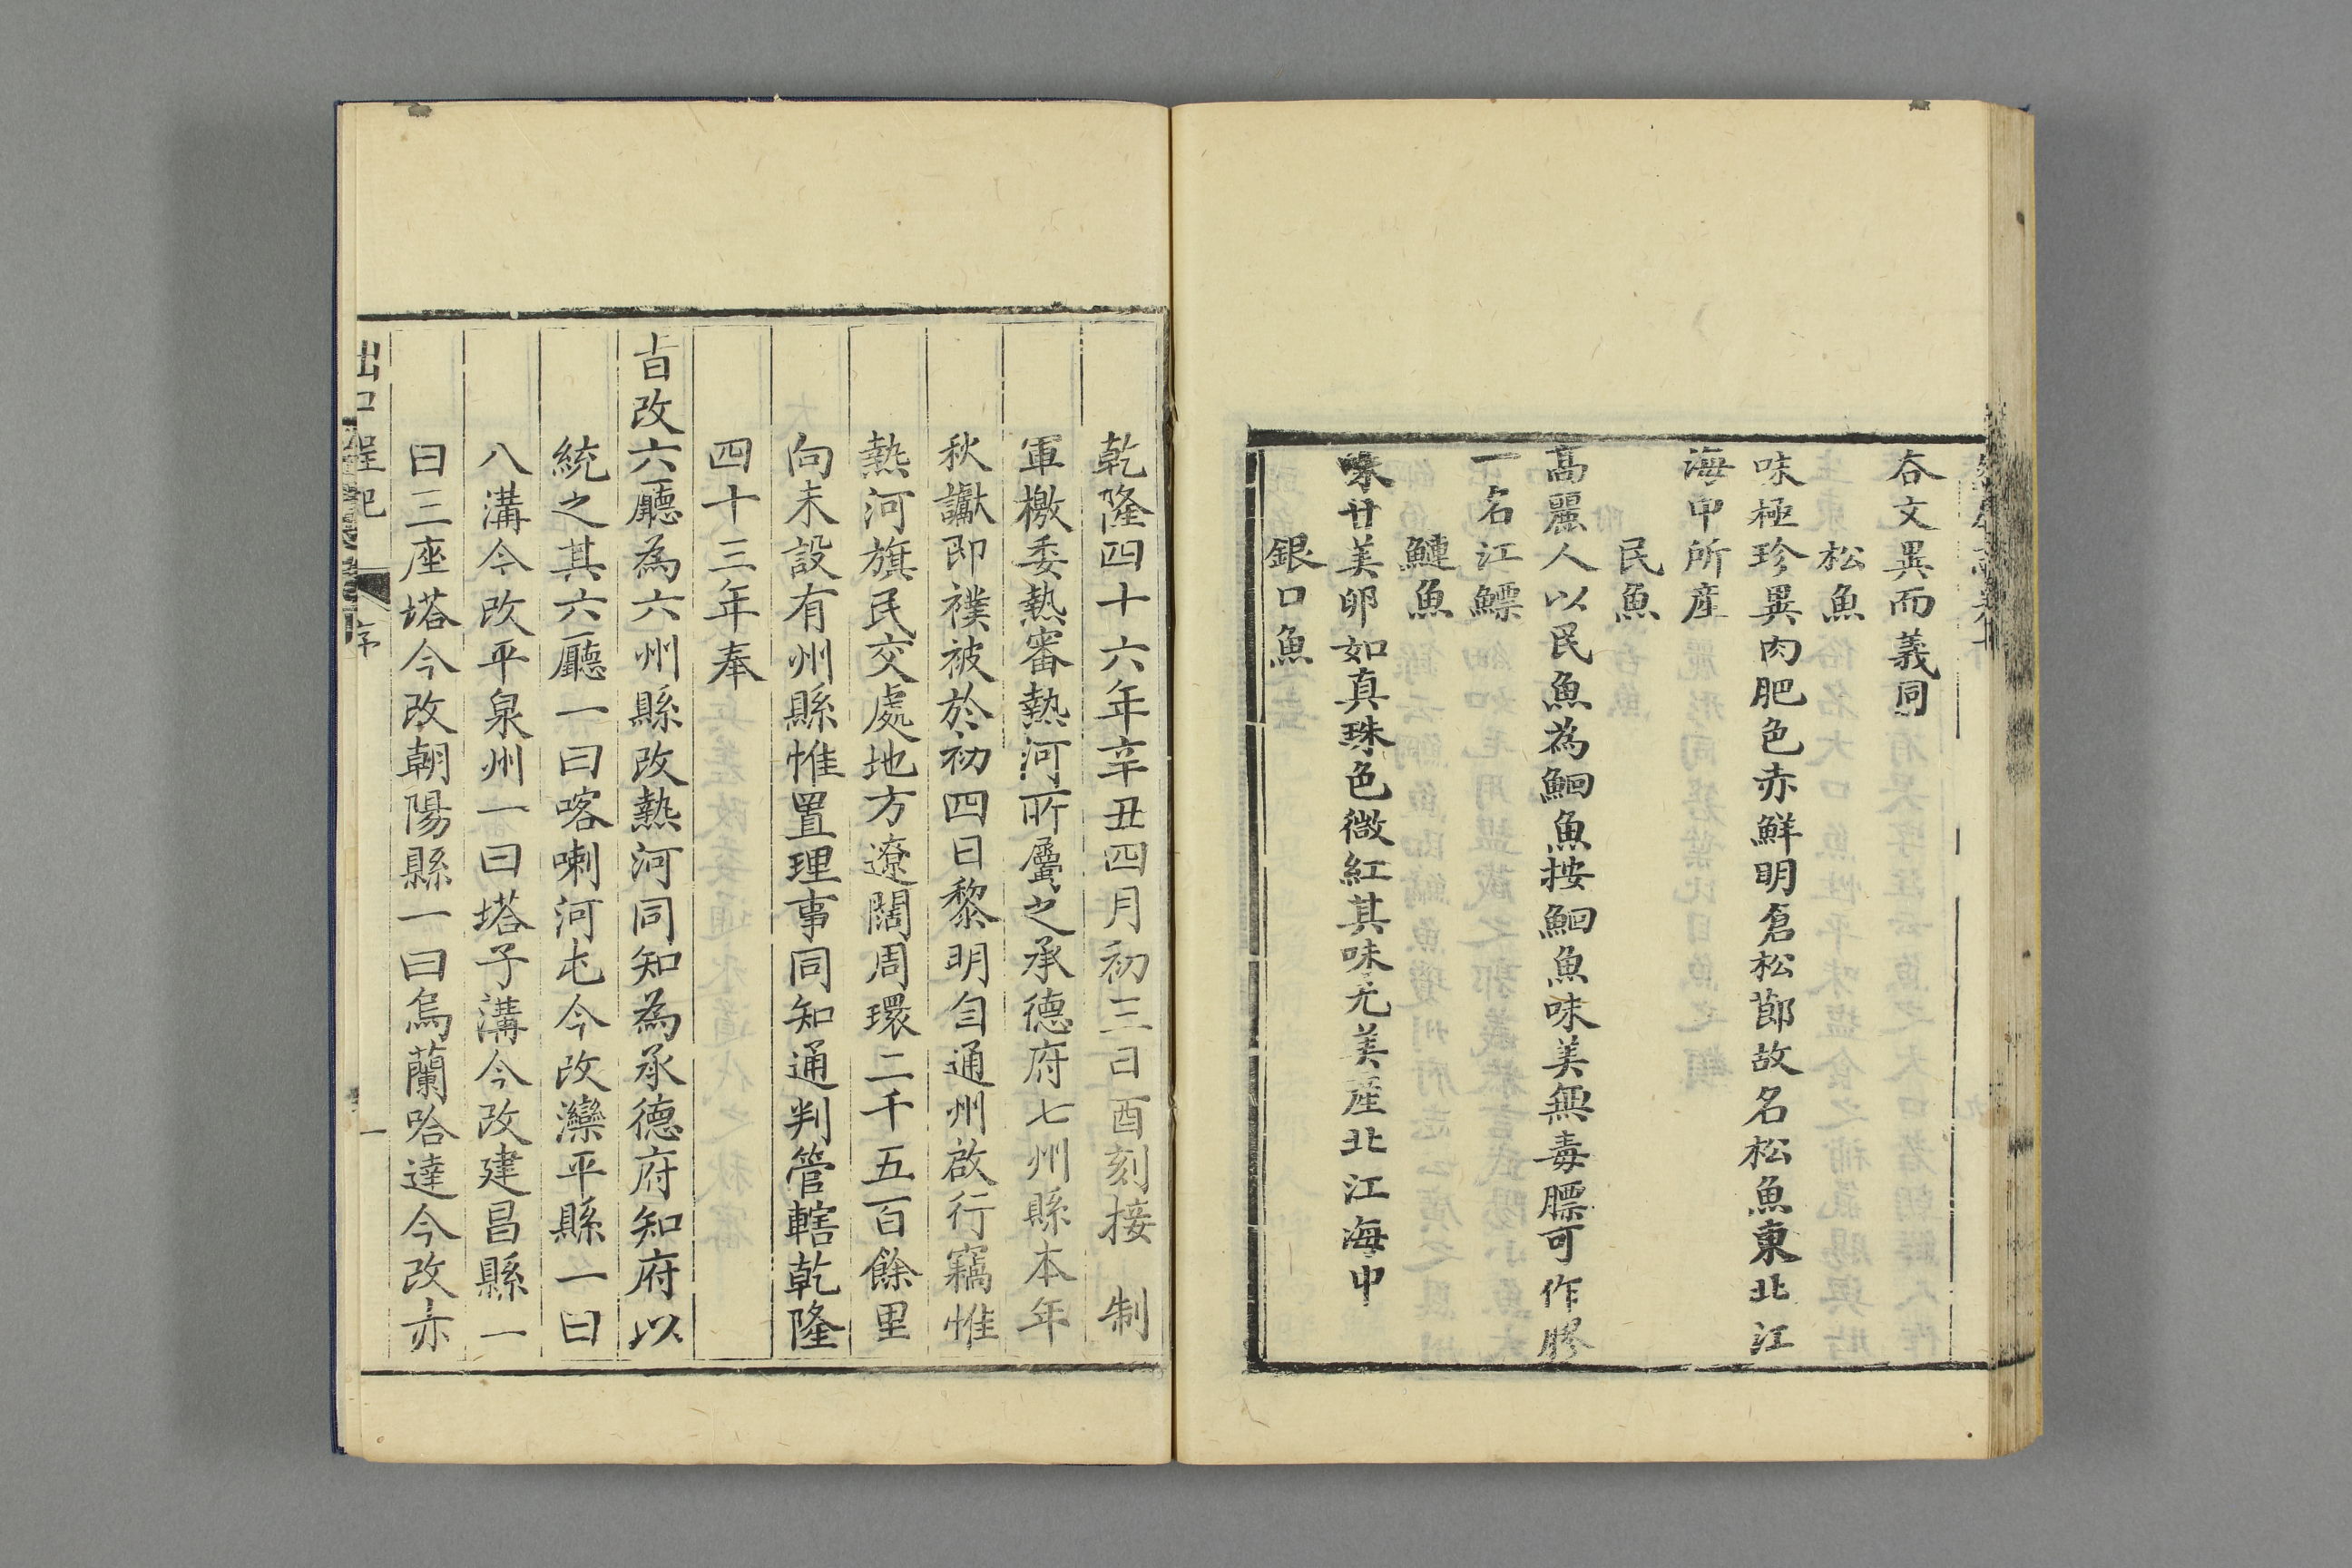 夻文異而義同
松魚
味極珍異肉肥色赤鮮明㑹松節故名松魚東北江
海中所産
民魚
髙麗人以民魚為鮰魚按鮰魚味美無毒膘可作膠
一名江鰾
鰱魚
味甘美卵如真珠色微紅其味尤美産北江海中
銀口魚
乾隆四十六年辛丑四月初三日酉刻接 制
軍檄委熱審熱河所屬之承德府七州縣本年
秋讞即襆被於初四日黎明自通州啟行竊惟
熱河旗民交處地方遼闊周環二千五百餘里
向未設有州縣惟置理事同知通判管轄乾隆
四十三年奉
㫖改六廳為六州縣改熱河同知為承德府知府以
統之其六廳一曰喀喇河屯今改灤平縣一曰
八溝今改平泉州一曰塔子溝今改建昌縣一
曰三座塔今改朝陽縣一曰烏蘭哈達今改赤
出口程記 序 一